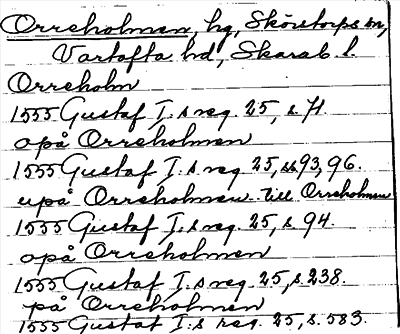 Orreholmen, hg, Skörstorps sn,
Vartofta hd, Skarab. l.
Orreholm
1555 Gustaf I. s reg. 25, s. 71.
opå Orreholmen
1555 Gustaf I. s reg. 25, ss 93, 96.
upå Orreholmen. till Orreholmen
1555 Gustaf I. s reg. 25, s. 94.
opå Orreholmen
1555 Gustaf I. s reg. 25, s. 238.
på Orreholmen
1555 Gustaf I. s reg. 25, s. 583.